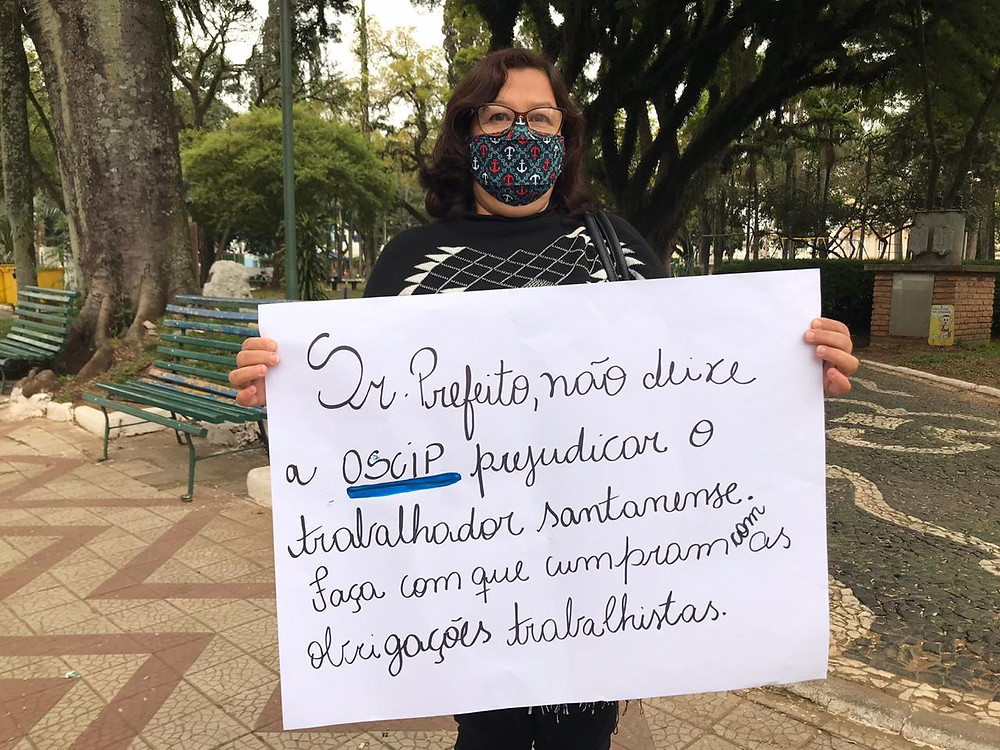 Sr. Prefeito, não deixe
a OSCIP prejudicar o
trabalhador santanense.
Faça com que cumpram com as
obrigações trabalhistas.